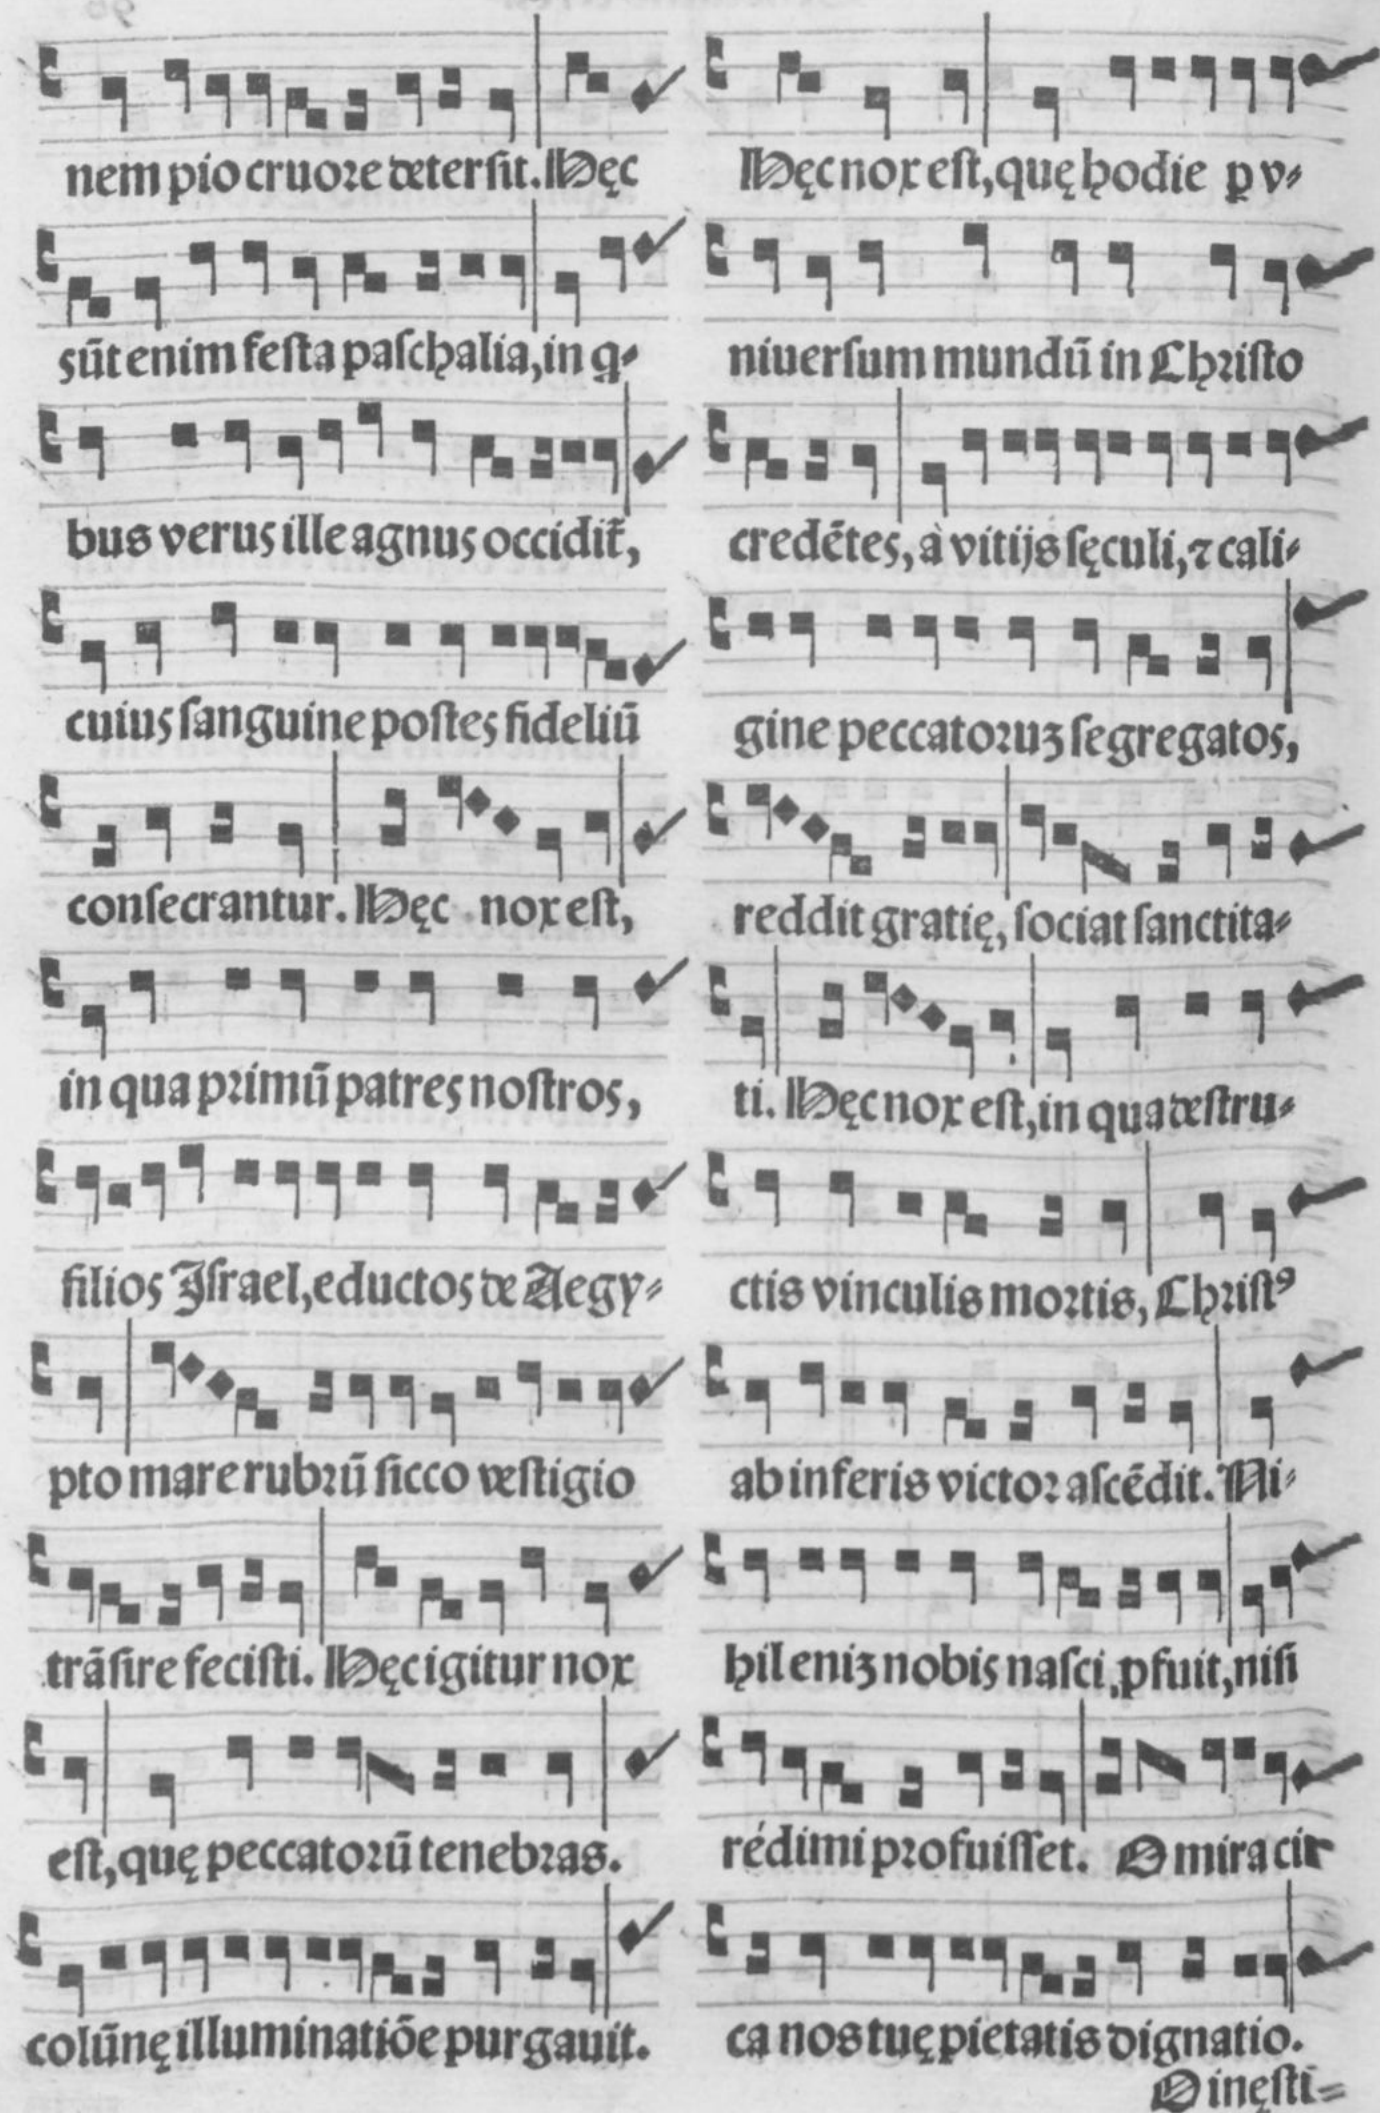 nem pio cruore detersit. Hęc
sūt enim festa paschalia, in q-
bus verus ille agnus occidit̃,
cuius sanguine postes fideliū
consecrantur. Hęc nox est,
in qua primū patres nostros,
filios Israel, eductos de Aegy-
pto mare rubrū sicco vestigio
trāsire fecisti. Hęc igitur nox
est, quę peccatorū tenebras.
colūnę illuminatiōe purgauit.
Hęc nox est, quę hodie ꝑ v-
niuersum mundū in Christo
credētes, à vitijs sęculi, ⁊ cali-
gine peccatoruꝫ segregatos,
reddit gratię, sociat sanctita-
ti. Hęc nox est, in qua destru-
ctis vinculis mortis, Christꝰ
ab inferis victor ascēdit. Ni-
hil eniꝫ nobis nasci ꝓfuit, nisi
rédimi profuisset. O mira cir
ca nos tuę pietatis dignatio.
O inęsti-